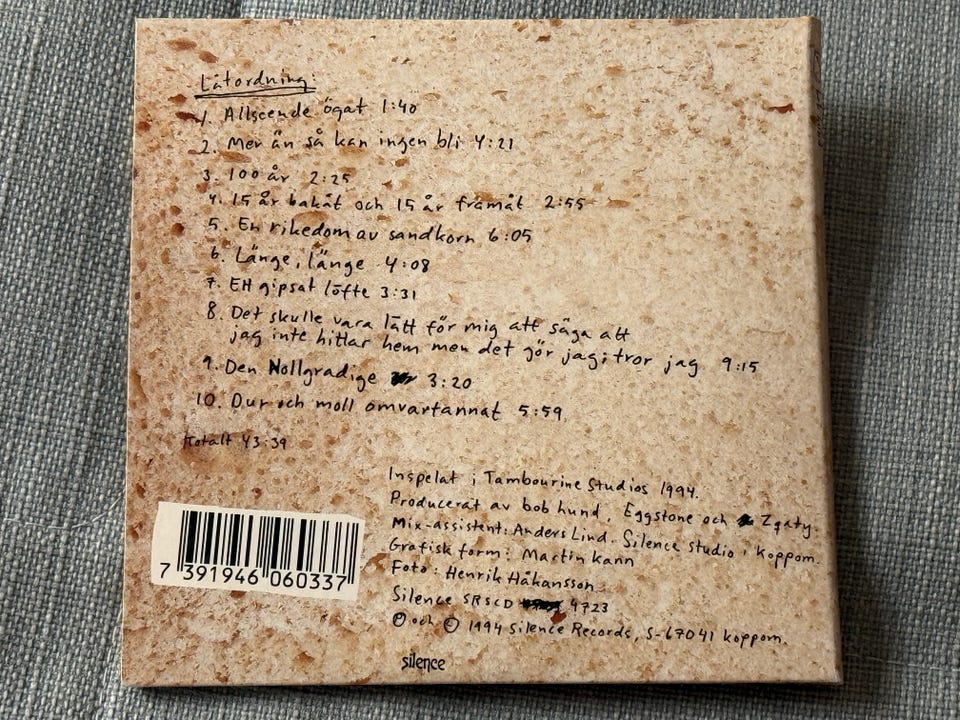 Låtordning:
1. Allseende ögat 1:40
2. Mer än så kan ingen bli 4:21
3. 100 år 2:25
4. 15 år bakåt och 15 år framåt 2:55
5. En rikedom av sandkorn 6:05
6. Länge, länge 4:08
7. Ett gipsat löfte 3:31
8. Det skulle vara lätt för mig att säga att
jag inte hittar hem men det gör jag; tror jag 9:15
9. Den Nollgradige 3:20
10. Dur och moll omvartannat 5:59
totalt 43:39
Inspelat i Tambourine Studios 1994.
Producerat av bob hund, Eggstone och Zqaty.
Mix-assistent: Anders Lind. Silence studio i Koppom.
Grafisk form: Martin Kann
Foto: Henrik Håkansson
Silence SRSCD 4723
℗ och © 1994 Silence Records, S-67041 Koppom.
7 391946 060337
silence